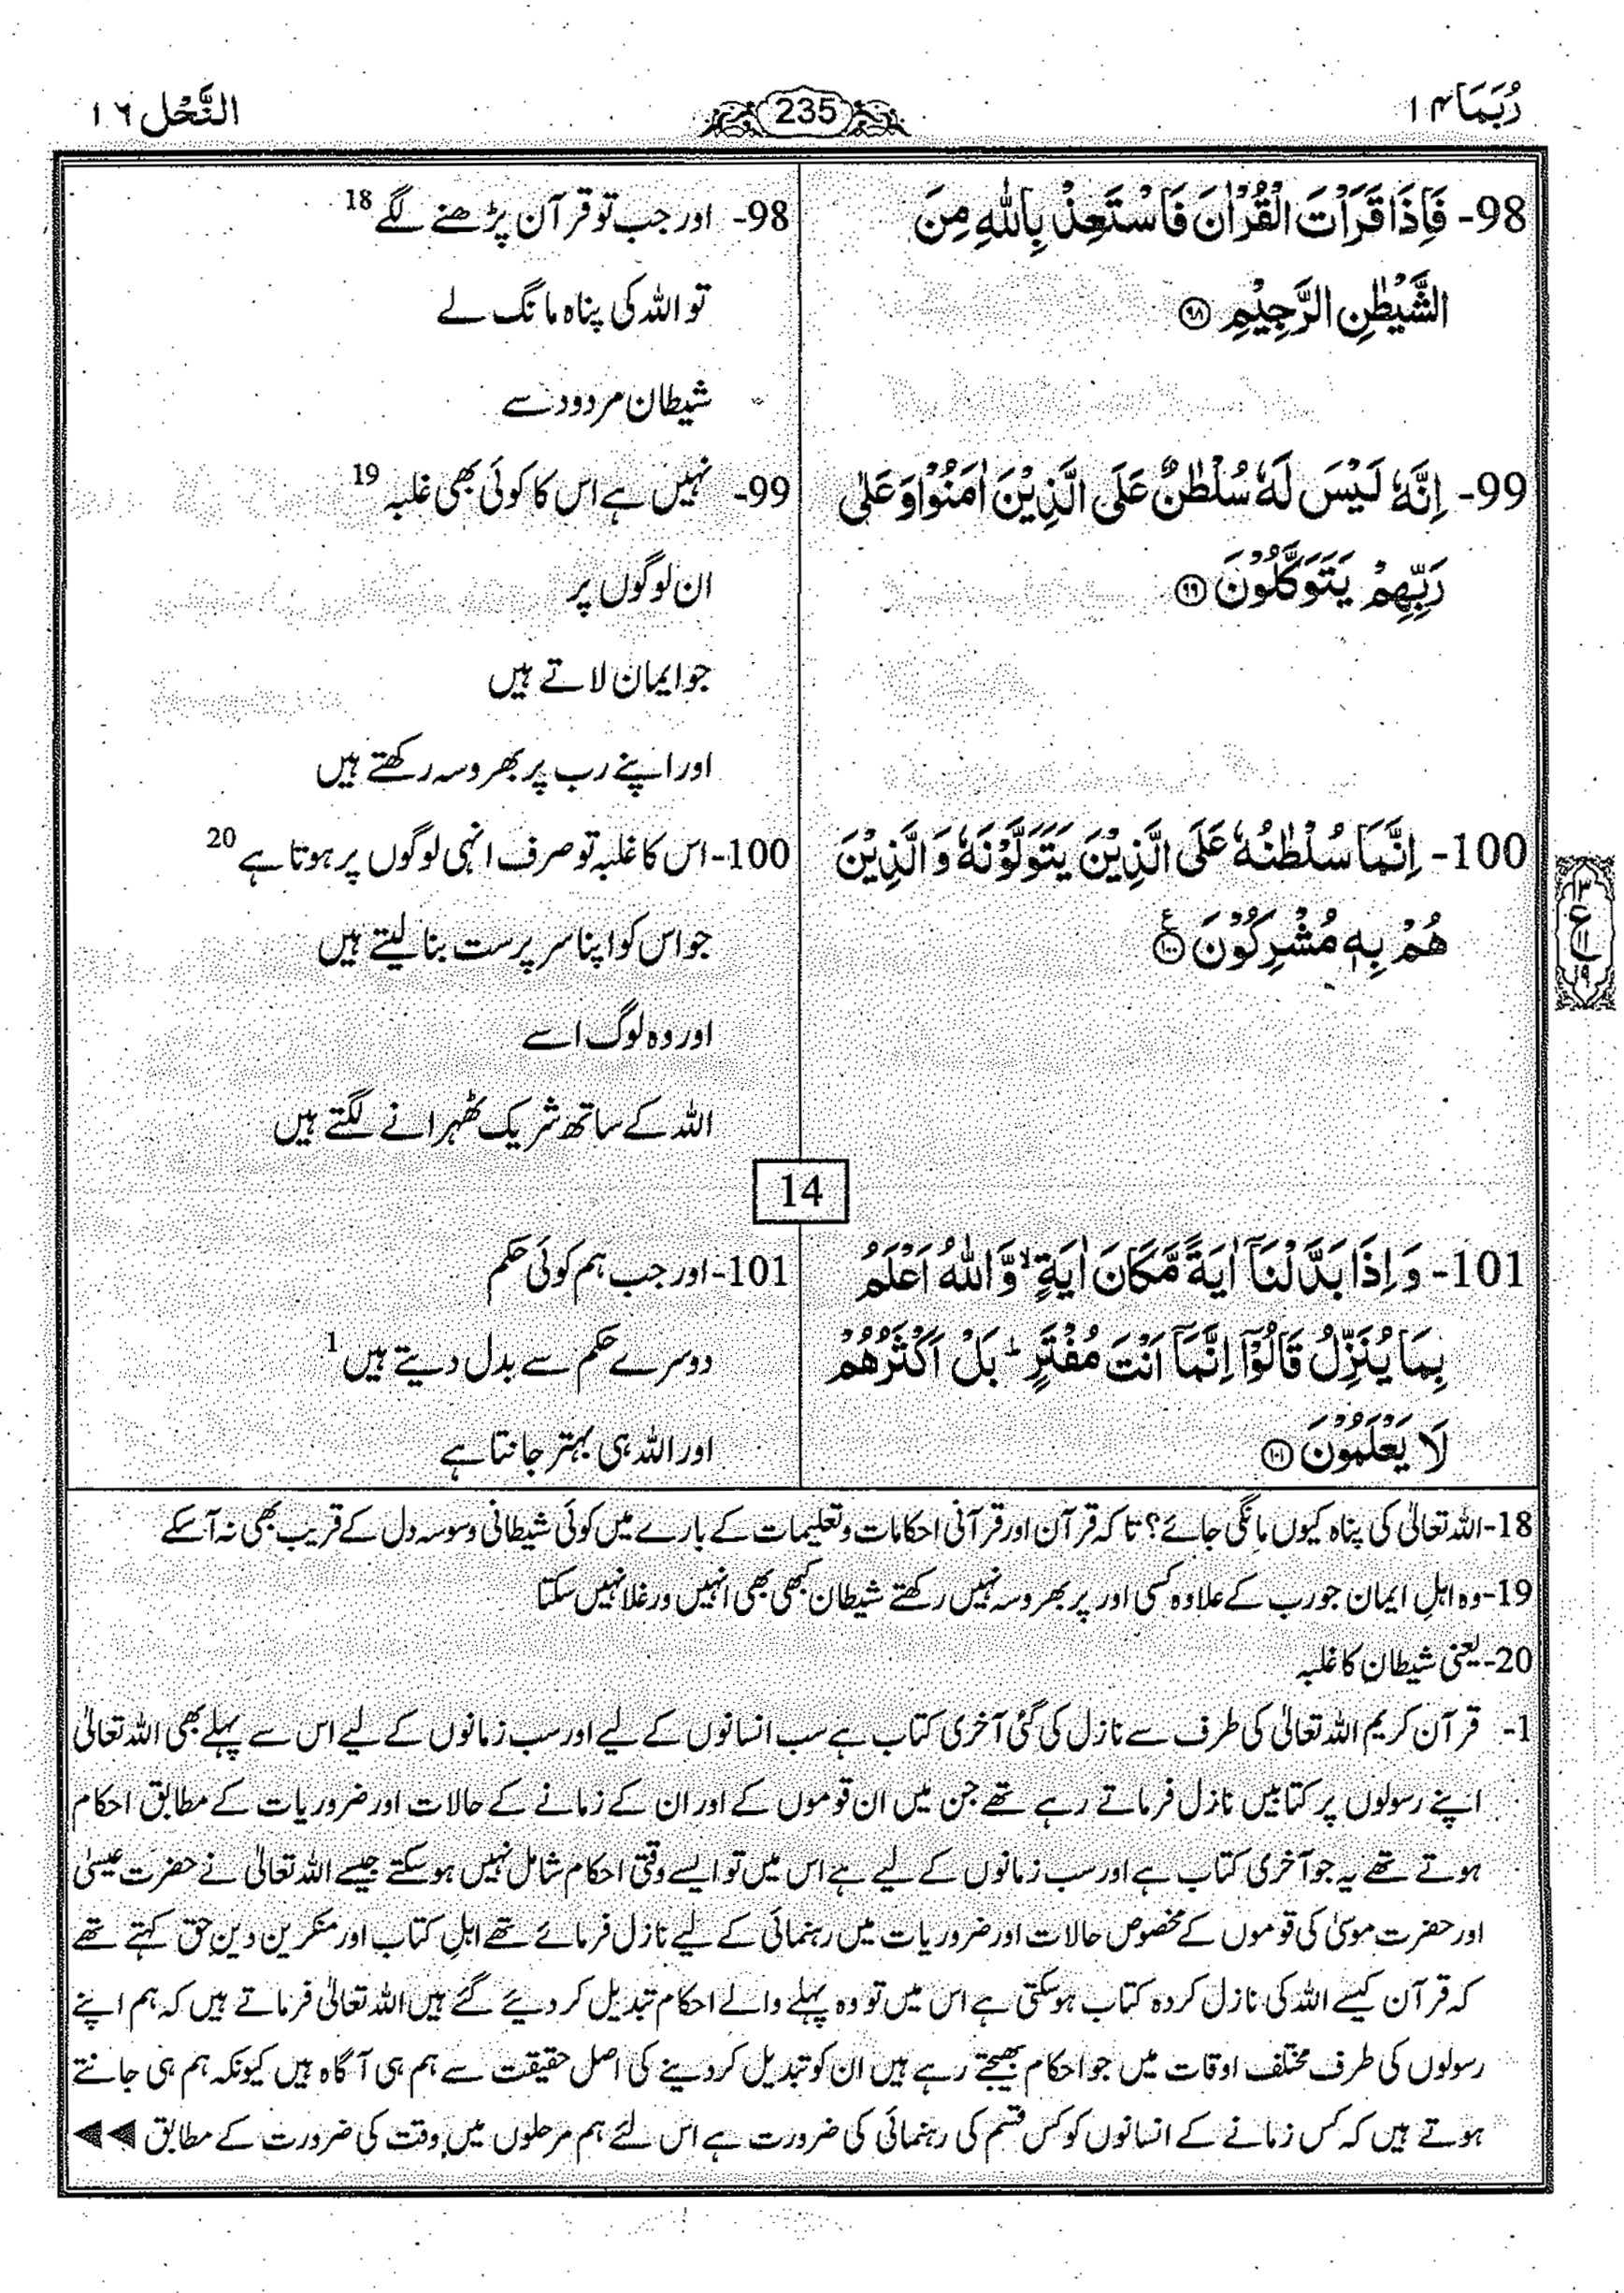 رُبَمَا ۱۴
235
النَّحْل ۱۶
98- فَاِذَا قَرَاْتَ الْقُرْاٰنَ فَاسْتَعِذْ بِاللّٰهِ مِنَ
الشَّيْطٰنِ الرَّجِيْمِ ۹۸
99- اِنَّهٗ لَيْسَ لَهٗ سُلْطٰنٌ عَلَى الَّذِيْنَ اٰمَنُوْا وَعَلٰى
رَبِّهِمْ يَتَوَكَّلُوْنَ ۹۹
100- اِنَّمَا سُلْطٰنُهٗ عَلَى الَّذِيْنَ يَتَوَلَّوْنَهٗ وَ الَّذِيْنَ
هُمْ بِهٖ مُشْرِكُوْنَ ۱۰۰ ع
98- اور جب تو قرآن پڑھنے لگے 18
تو اللہ کی پناہ مانگ لے
شیطان مردود سے
99- نہیں ہے اس کا کوئی بھی غلبہ 19
ان لوگوں پر
جو ایمان لاتے ہیں
اور اپنے رب پر بھروسہ رکھتے ہیں
100- اس کا غلبہ تو صرف انہی لوگوں پر ہوتا ہے 20
جو اس کو اپنا سرپرست بنا لیتے ہیں
اور وہ لوگ اسے
اللہ کے ساتھ شریک ٹھہرانے لگتے ہیں
14
101- وَ اِذَا بَدَّلْنَاۤ اٰيَةً مَّكَانَ اٰيَةٍ ۙ وَّ اللّٰهُ اَعْلَمُ
بِمَا يُنَزِّلُ قَالُوْۤا اِنَّمَاۤ اَنْتَ مُفْتَرٍ ؕ بَلْ اَكْثَرُهُمْ
لَا يَعْلَمُوْنَ ۱۰۱
101- اور جب ہم کوئی حکم
دوسرے حکم سے بدل دیتے ہیں 1
اور اللہ ہی بہتر جانتا ہے
18- اللہ تعالیٰ کی پناہ کیوں مانگی جائے؟ تاکہ قرآن اور قرآنی احکامات و تعلیمات کے بارے میں کوئی شیطانی وسوسہ دل کے قریب بھی نہ آسکے
19- وہ اہلِ ایمان جو رب کے علاوہ کسی اور پر بھروسہ نہیں رکھتے شیطان کبھی بھی انہیں ورغلا نہیں سکتا
20- یعنی شیطان کا غلبہ
1- قرآن کریم اللہ تعالیٰ کی طرف سے نازل کی گئی آخری کتاب ہے سب انسانوں کے لیے اور سب زمانوں کے لیے اس سے پہلے بھی اللہ تعالیٰ
اپنے رسولوں پر کتابیں نازل فرماتے رہے تھے جن میں ان قوموں کے اور ان کے زمانے کے حالات اور ضروریات کے مطابق احکام
ہوتے تھے یہ جو آخری کتاب ہے اور سب زمانوں کے لیے ہے اس میں تو ایسے وقتی احکام شامل نہیں ہوسکتے جیسے اللہ تعالیٰ نے حضرت عیسیٰ
اور حضرت موسیٰ کی قوموں کے مخصوص حالات اور ضروریات میں رہنمائی کے لیے نازل فرمائے تھے اہلِ کتاب اور منکرین دین حق کہتے تھے
کہ قرآن کیسے اللہ کی نازل کردہ کتاب ہوسکتی ہے اس میں تو وہ پہلے والے احکام تبدیل کر دیئے گئے ہیں اللہ تعالیٰ فرماتے ہیں کہ ہم اپنے
رسولوں کی طرف مختلف اوقات میں جو احکام بھیجتے رہے ہیں ان کو تبدیل کر دینے کی اصل حقیقت سے ہم ہی آگاہ ہیں کیونکہ ہم ہی جانتے
ہوتے ہیں کہ کس زمانے کے انسانوں کو کس قسم کی رہنمائی کی ضرورت ہے اس لئے ہم مرحلوں میں وقت کی ضرورت کے مطابق ◀◀